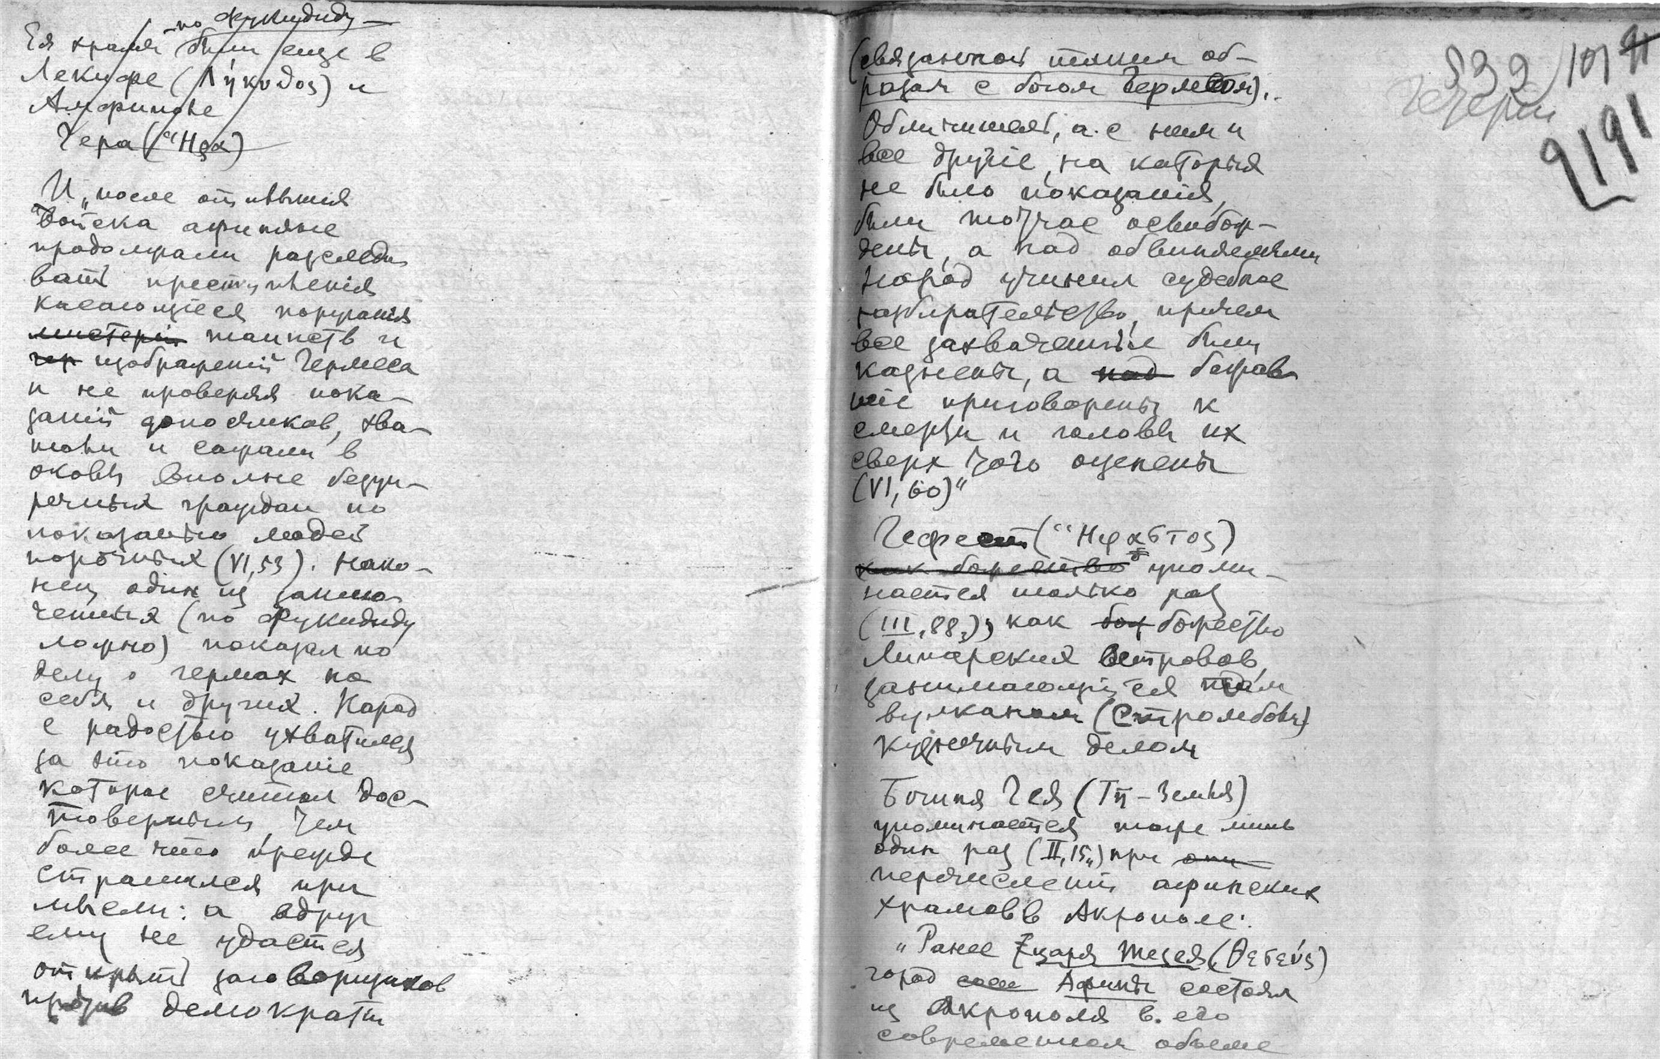 по Фукидиду
Ея храмы были еще в
Лекифе (Λήκυθος) и
Амфиполе
Гера (Ἥρα)
И „после отплытия
войска афиняне
продолжали разследо
вать преступления
касающиеся поругания
мистерий таинств и
гер изображений Гермеса
и не проверяя пока-
заний доносчиков, хва-
тали и сажали в
оковы вполне безуп-
речных граждан по
показанию людей
порочных (VI, 53). Нако-
нец один из заклю
ченных (по Фукидиду
ложно) показал по
делу о гермах на
себя и других. Народ
с радостью ухватился
за это показание
которое считал дос-
товерным, тем
более что прежде
страшился при
мысли: а вдруг
ему не удастся
открыть заговорщиков
против демократии
(связанной таким об-
разом с богом Гермесом)..
Обличитель, а с ним и
все другие, на которых
не было показания,
были тотчас освобож-
дены, а над обвиняемыми
народ учинил судебное
разбирательство, причем
все захваченные были
казнены, а над бежав
шие приговорены к
смерти и головы их
сверх того оценены
(VI, 60)“
Гефест (Ἥφαιστος)
как божество упоми-
нается только раз
(III, 88), как бож божество
Липарских островов,
занимающийся там
вулканом (Стромболи)
кузнечным делом
Богиня Гея (Γῆ – Земля)
упоминается тоже лишь
один раз (II, 15,) при опи
перечислении афинских
храмов в Акрополе:
„Ранее царя Тезея (Θεσεύς)
город Афины состоял
из Акрополя в его
современном объеме
532 101
Чечерин
2191